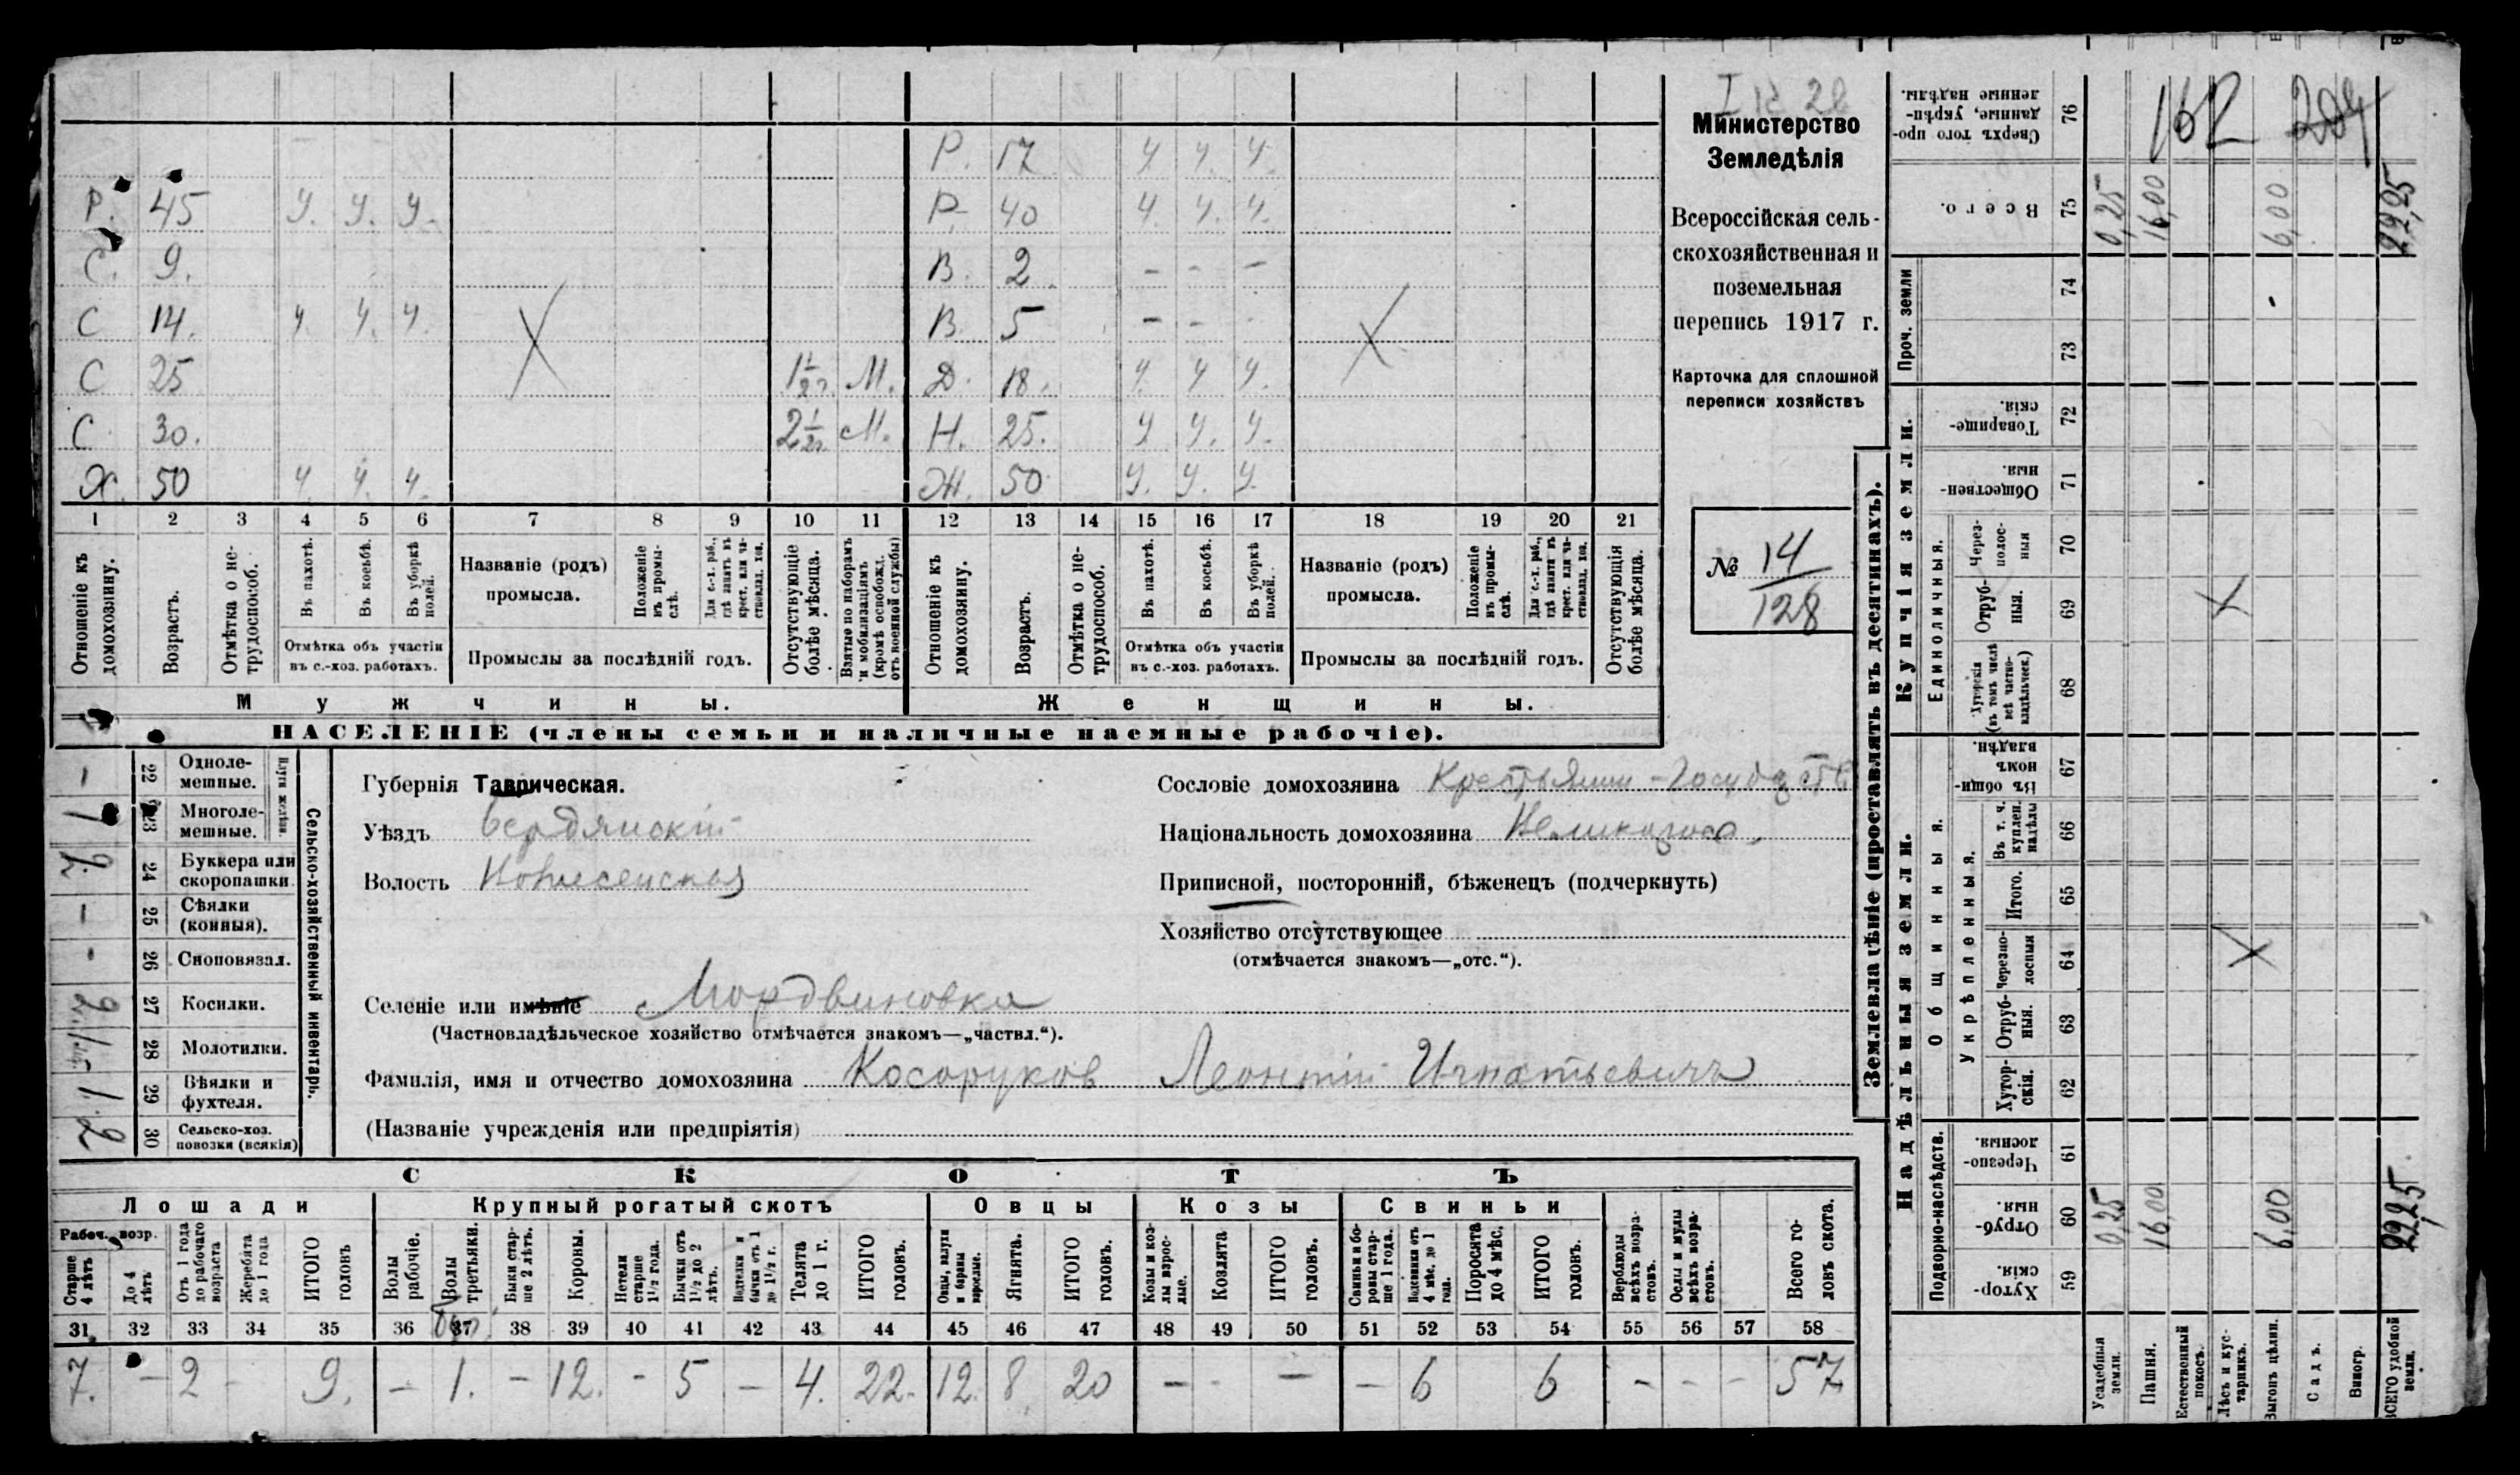 Р. 17 ч. ч. ч.
Р. 45 ч. ч. ч. Р. 40 ч. ч. ч.
С. 9. В. 2 - - -
С 14. ч. ч. ч. В. 5 - - -
С 25 М. Д. 18. ч. ч. ч.
С. 30. М. Н. 25. ч. ч. ч.
Х. 50 ч. ч. ч. Ж. 50 ч. ч. ч.
1 2 3 4 5 6 7 8 9 10 11 12 13 14 15 16 17 18 19 20 21
Отношеніе къ домохозяину.
Возрастъ.
Отмѣтка о нетрудоспособ.
Въ пахотѣ.
Въ косьбѣ.
Въ уборкѣ полей.
Отмѣтка объ участіи
въ с.-хоз. работахъ.
Названіе (родъ)
промысла.
Положеніе въ промыслѣ.
Для с.-х. раб., гдѣ занятъ въ крест. или частновлад. хоз.
Промыслы за послѣдній годъ.
Отсутствующіе болѣе мѣсяца.
Взятые по наборамъ и мобилизаціямъ (кромѣ освобожд. отъ военной службы)
Отношеніе къ домохозяину.
Возрастъ.
Отмѣтка о нетрудоспособ.
Въ пахотѣ.
Въ косьбѣ.
Въ уборкѣ полей.
Отмѣтка объ участіи
въ с.-хоз. работахъ.
Названіе (родъ)
промысла.
Положеніе въ промыслѣ.
Для с.-х. раб., гдѣ заняты въ крест. или частновлад. хоз.
Промыслы за послѣдній годъ.
Отсутствующія болѣе мѣсяца.
Мужчины. Женщины.
НАСЕЛЕНІЕ (члены семьи и наличные наемные рабочіе).
Министерство
Земледѣлія
Всероссійская сель-
скохозяйственная и
поземельная
перепись 1917 г.
Карточка для сплошной
переписи хозяйствъ
№ 14
128
Сельско-хозяйственный инвентарь.
Плуги желѣзн.
- 22 Одноле-
мешные.
1 23 Многоле-
мешные.
2. 24 Буккера или
скоропашки.
- 25 Сѣялки
(конныя).
- 26 Сноповязал.
2 27 Косилки.
28 Молотилки.
1. 29 Вѣялки и
фухтеля.
2 30 Сельско-хоз.
повозки (всякія)
Губернія Таврическая.
Уѣздъ Бердянскій
Волость
Сословіе домохозяина
Національность домохозяина
Приписной, посторонній, бѣженецъ (подчеркнуть)
Хозяйство отсутствующее
(отмѣчается знакомъ—„отс.“).
Селеніе или имѣніе Мордвиновка
(Частновладѣльческое хозяйство отмѣчается знакомъ—„частвл.“).
Фамилія, имя и отчество домохозяина Косоруков Леонтій Игнатьевичъ
(Названіе учрежденія или предпріятія)
СКОТЪ
Лошади Крупный рогатый скотъ Овцы Козы Свиньи
Рабоч. возр.
Старше 4 лѣтъ
До 4 лѣтъ
Отъ 1 года до рабочаго возраста
Жеребята до 1 года
ИТОГО головъ
Волы рабочіе.
Волы третьяки.
Быки старше 2 лѣтъ.
Коровы.
Нетели старше 1½ года.
Бычки отъ 1½ до 2 лѣтъ.
Подтелки и бычки отъ 1 до 1½ г.
Телята до 1 г.
ИТОГО головъ.
Овцы, валухи и бараны взрослые.
Ягнята.
ИТОГО головъ.
Козы и козлы взрослые.
Козлята
ИТОГО головъ.
Свиньи и боровы старше 1 года.
Подсвинки отъ 4 мѣс. до 1 года.
Поросята до 4 мѣс.
ИТОГО головъ.
Верблюды всѣхъ возрастовъ.
Ослы и мулы всѣхъ возрастовъ.
Всего головъ скота.
31 32 33 34 35 36 37 38 39 40 41 42 43 44 45 46 47 48 49 50 51 52 53 54 55 56 57 58
7. - 2 - 9. - 1. - 12. - 5 - 4. 22. 12. 8 20 - - - - 6 6 - - - 57
Землевладѣніе (проставлять въ десятинахъ).
Надѣльныя земли. Купчія земли. Проч. земли
Подворно-наслѣдств.
Общинныя.
Укрѣпленныя.
Единоличныя.
Сверхъ того про-
данные, укрѣп-
ленные надѣлы. 76 162 204
Всего. 75 0,25 16,00 6,00 22,25
74
73
Товарище-
скія. 72
Обществен-
ныя. 71
Черезполосныя 70
Отрубныя. 69
Хуторскія (въ томъ числѣ всѣ частновладѣльческ.) 68
Въ общин-
номъ
владѣн. 67
Въ т. ч. куплен. надѣлы 66
Итого. 65
Черезполосныя 64
Отрубныя. 63
Хуторскія. 62
Черезпо-
лосныя. 61
Отруб-
ныя. 60 0,25 16,00 6,00 22,25
Хутор-
скія. 59
Усадебныя земли.
Пашня.
Естественный покосъ.
Лѣсъ и кустарникъ.
Выгонъ цѣлин.
Садъ.
Виногр.
ВСЕГО удобной земли.